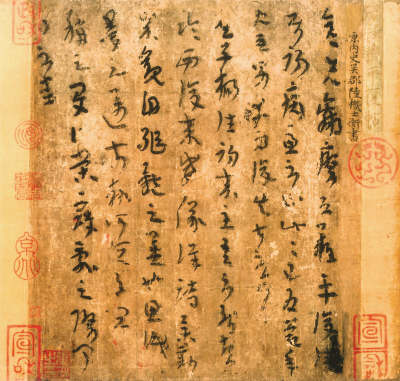 原內史吳郡陸機士衡書
彥先羸瘵恐難平復往屬
初病慮不止此此已為慶承
使唯男幸為復失前憂耳
子楊往初來主吾不能盡
臨西復來威儀詳跱舉動
成觀自軀體之美也思識
量之邁前執所恆有宜
稱之夏伯榮寇亂之際聞
問不悉